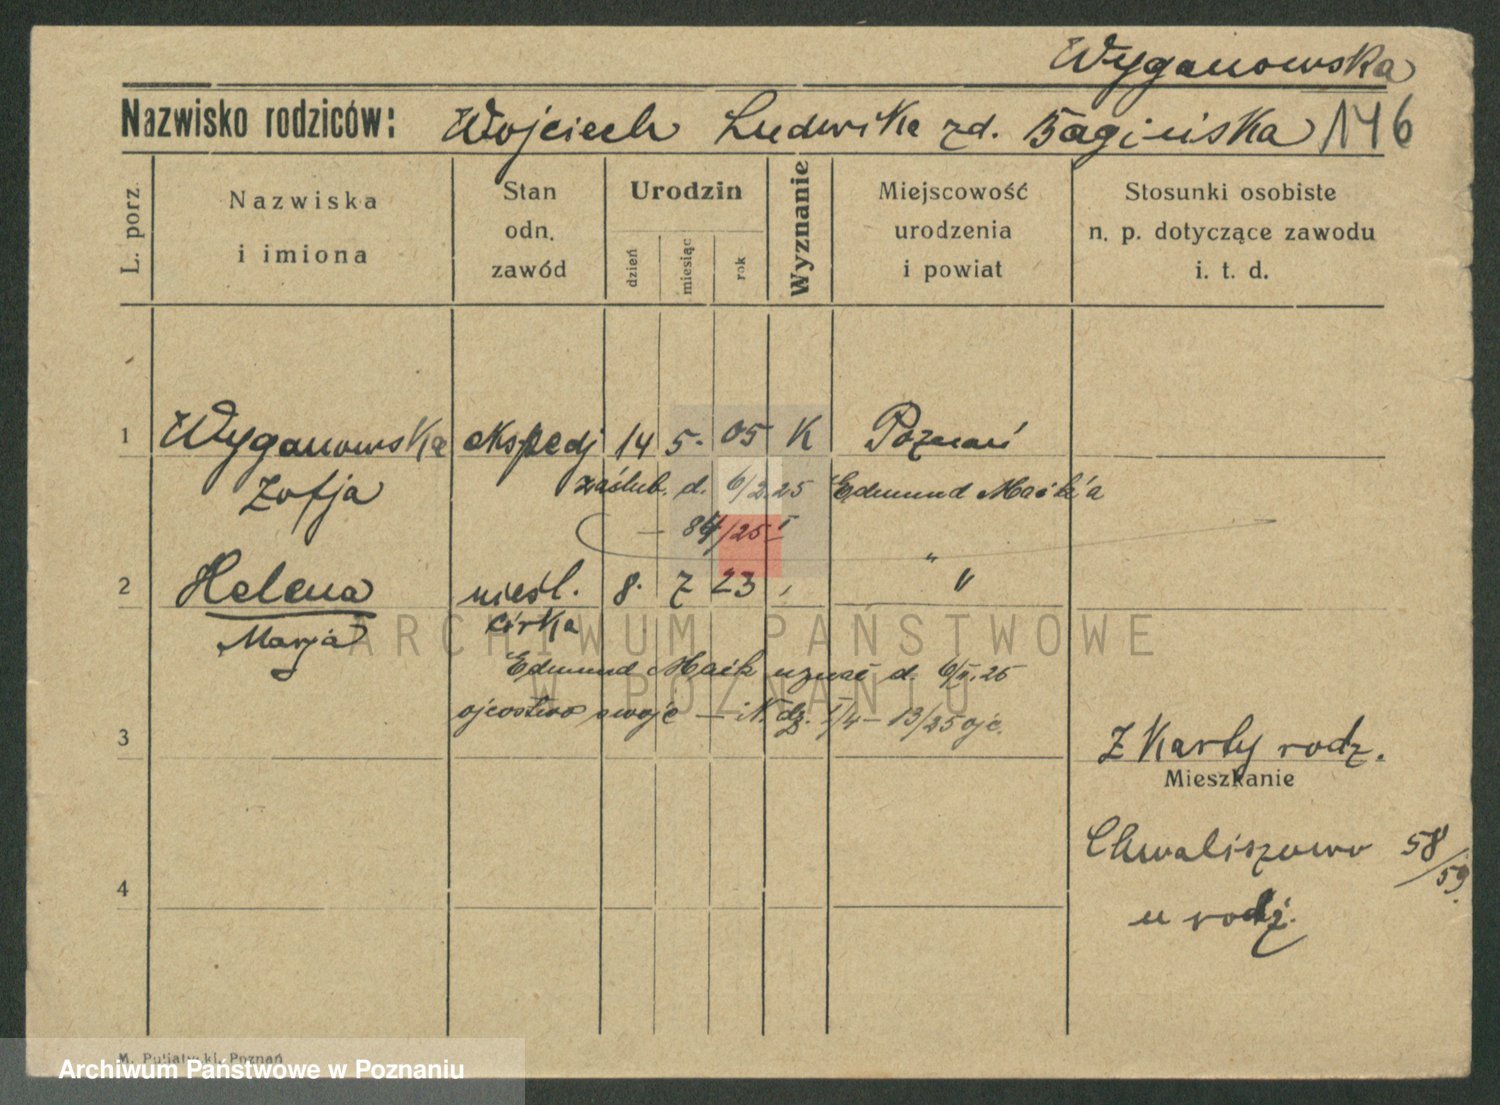 Wyganowska
Nazwisko rodziców: Wojciech Ludwika zd. Bagińska 146
L. porz. Nazwiska i imiona Stan odn. zawód Urodzin dzień miesiąc rok Wyznanie Miejscowość urodzenia i powiat Stosunki osobiste n. p. dotyczące zawodu i. t. d.
1 Wyganowska ekspedj 14 5. 05 K Poznań
Zofja zaślub. d. 6/2 25 Edmund Maćk'a
— /25 I
"
2 Helena nieśl. 8. 7 23 , "
Marja córka
ARCHIWUM PAŃSTWOWE
W POZNANIU
Edmund Maćk uznał d. 6/II.25
ojcostwo swoje — N. dz. I/4 — 13/25 ojc.
3
Z Karty rodz.
Mieszkanie
Chwaliszewo 58/59.
u rodz.
4
M. Putiatycki, Poznań
Archiwum Państwowe w Poznaniu